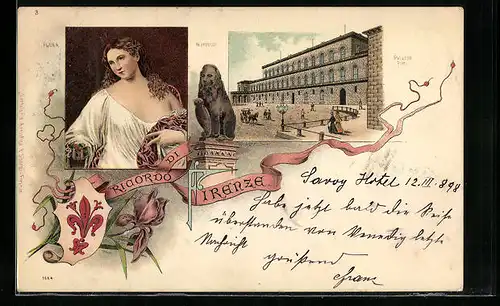 3
FLORA
PALAZZO
PITTI
RICORDO DI
FIRENZE
Savoy Hotel 12.III.898
Habe jetzt bald die Reise
überstanden von Venedig letzte
Nachricht
grüßend
Franz